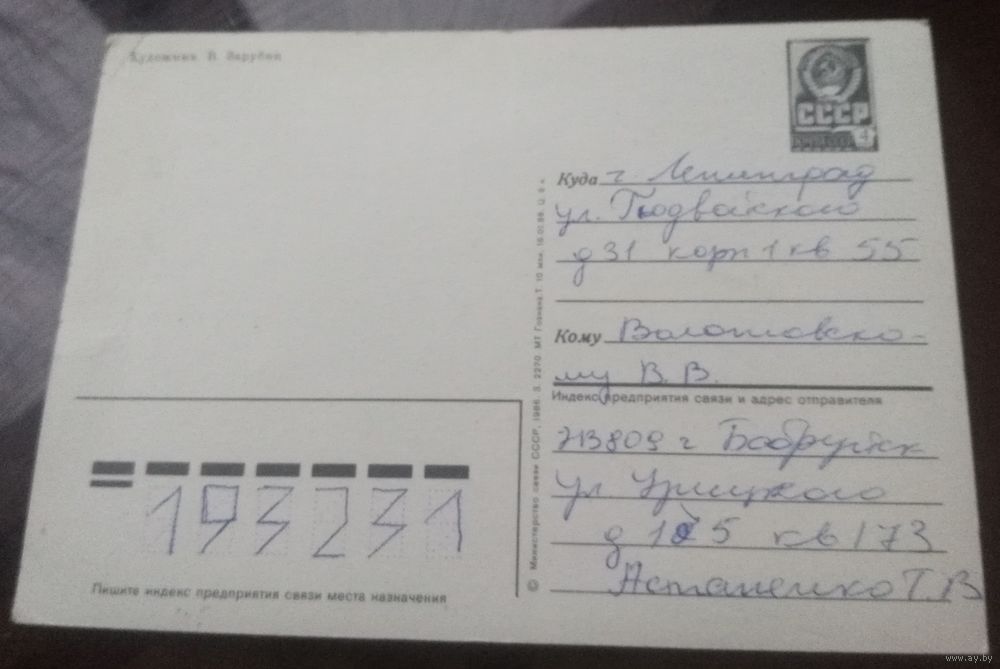 Художник В. Зарубин
СССР
4
Куда г. Ленинград
ул. Подвойского
д 31 корп 1 кв 55
Кому Волотовско-
му В. В.
Индекс предприятия связи и адрес отправителя
213809 г Бобруйск
ул. Урицкого
д 125 кв 173
Астапенко Т.В
193231
Пишите индекс предприятия связи места назначения
© Министерство связи СССР, 1986. З. 2270. МТ Гознака. Т. 10 млн. Ц. 5 к.
www.ay.by